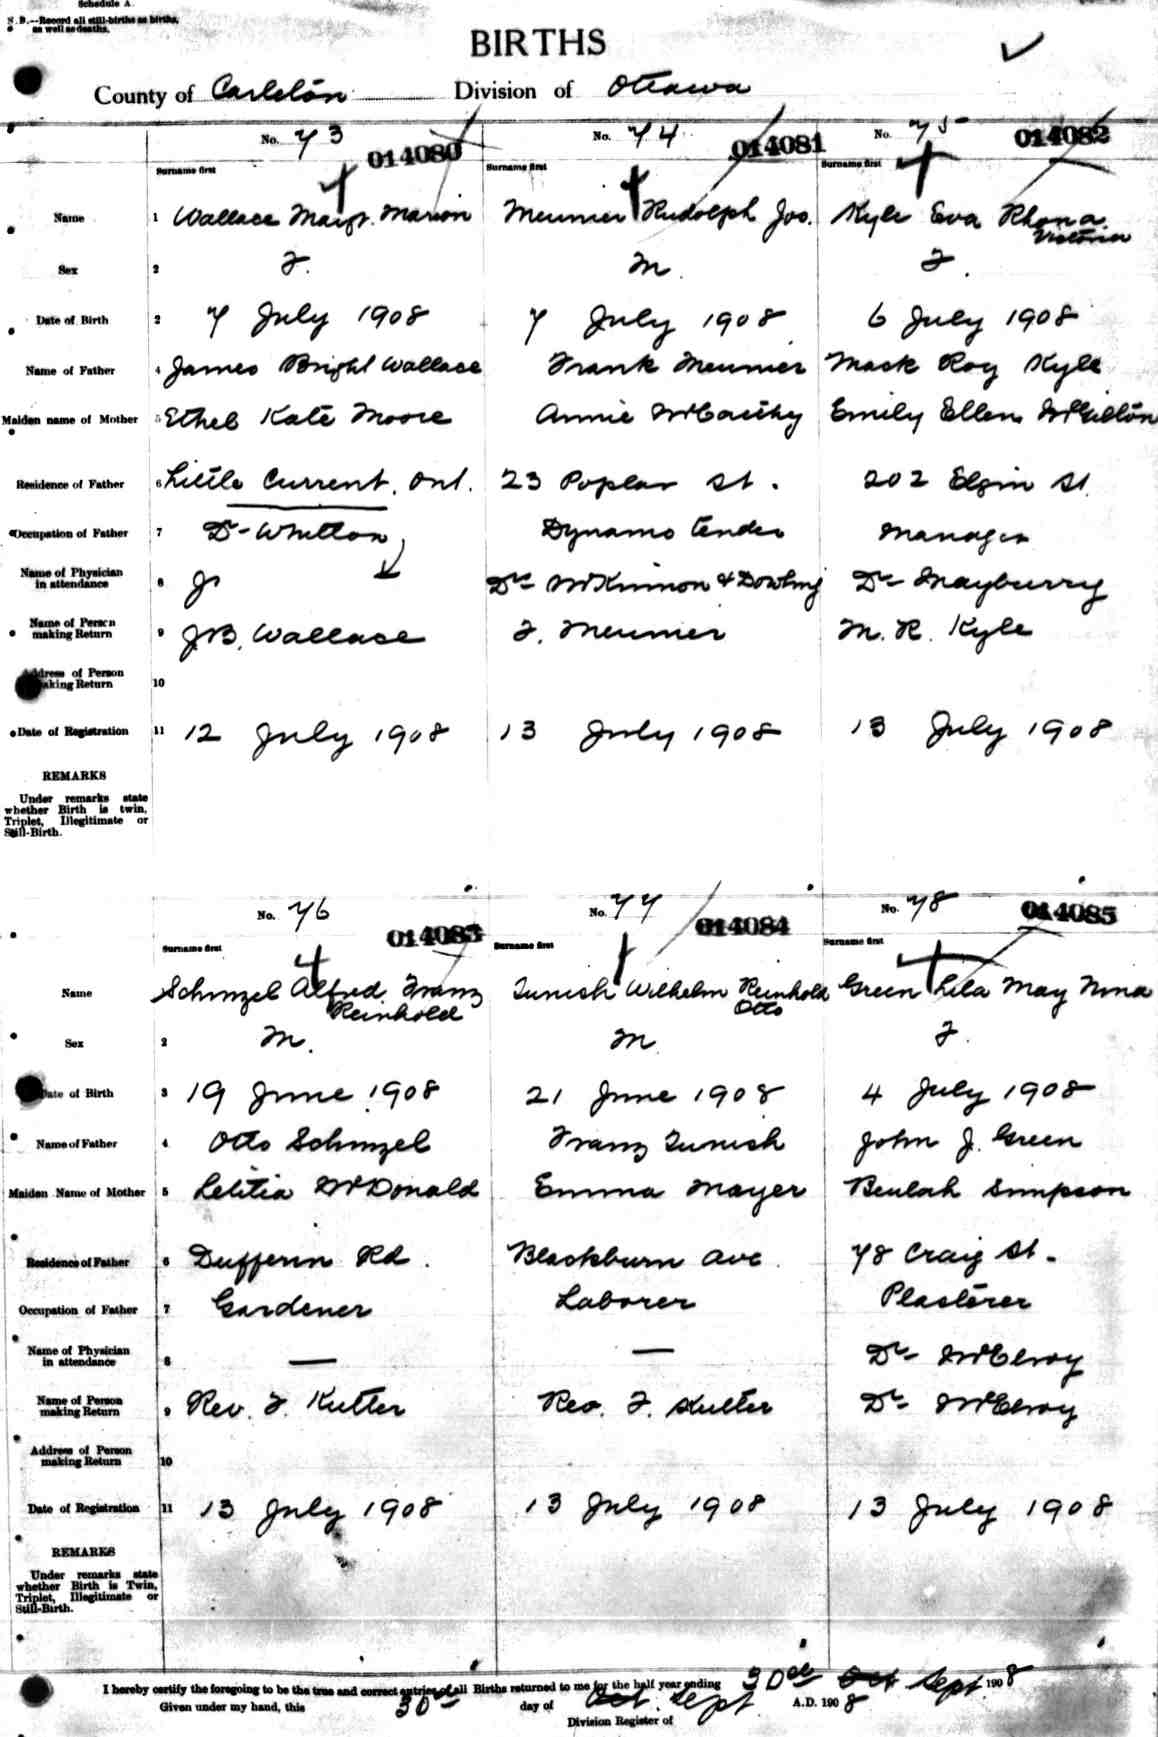 Schedule A.
N.B.—Record all still-births as births, as well as deaths.
BIRTHS
County of Carleton Division of Ottawa
No. 73 014080 No. 74 014081 No. 75 014082
Surname first Surname first Surname first
Name 1 Wallace Margt. Marion Meunier Rudolph Jos. Kyle Eva Rhona Victoria
Sex 2 F. M. F.
Date of Birth 3 7 July 1908 7 July 1908 6 July 1908
Name of Father 4 James Bright Wallace Frank Meunier Mack Roy Kyle
Maiden name of Mother 5 Ethel Kate Moore Annie McCarthy Emily Ellen
Residence of Father 6 Little Current, Ont. 23 Poplar St. 202 Elgin St.
Occupation of Father 7 Dr Whitton Dynamo tender Manager
Name of Physician in attendance 8 Drs McKinnon & Dowling Dr Mayburry
Name of Person making Return 9 J.B. Wallace F. Meunier M. R. Kyle
Address of Person making Return 10
Date of Registration 11 12 July 1908 13 July 1908 13 July 1908
REMARKS
Under remarks state whether Birth is twin, Triplet, Illegitimate or Still-Birth.
No. 76 014083 No. 77 014084 No. 78 014085
Surname first Surname first Surname first
Name Schinzel Alfred Franz Reinhold Wilhelm Reinhold Otto Green Lila May Nina
Sex 2 M. M F.
Date of Birth 3 19 June 1908 21 June 1908 4 July 1908
Name of Father 4 Otto Schinzel Franz John J. Green
Maiden Name of Mother 5 Letitia McDonald Emma Mayer Beulah Simpson
Residence of Father 6 Dufferin Rd. Blackburn Ave 78 Craig St.
Occupation of Father 7 Gardener Laborer Plasterer
Name of Physician in attendance 8 — — Dr McElroy
Name of Person making Return 9 Rev. F. Kutter Rev. F. Kutter Dr McElroy
Address of Person making Return 10
Date of Registration 11 13 July 1908 13 July 1908 13 July 1908
REMARKS
Under remarks state whether Birth is Twin, Triplet, Illegitimate or Still-Birth.
I hereby certify the foregoing to be the true and correct entries of all Births returned to me for the half year ending 30th Oct Sept 1908
Given under my hand, this 30th day of Oct. Sept A.D. 1908
Division Register of